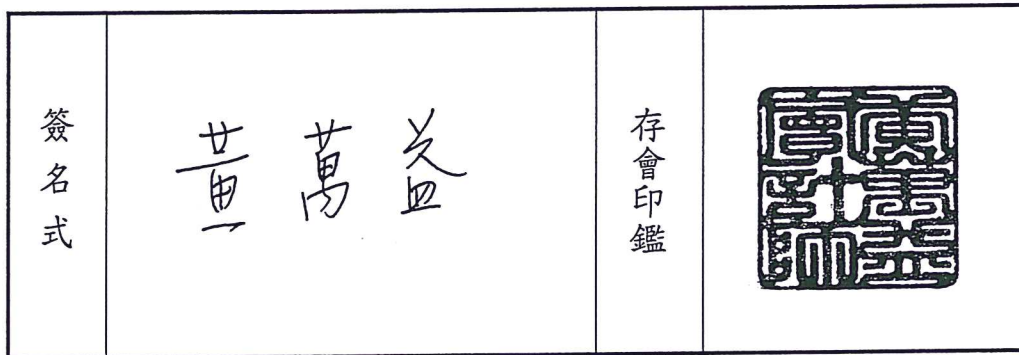 簽名式
黃萬益
存會印鑑
會計師